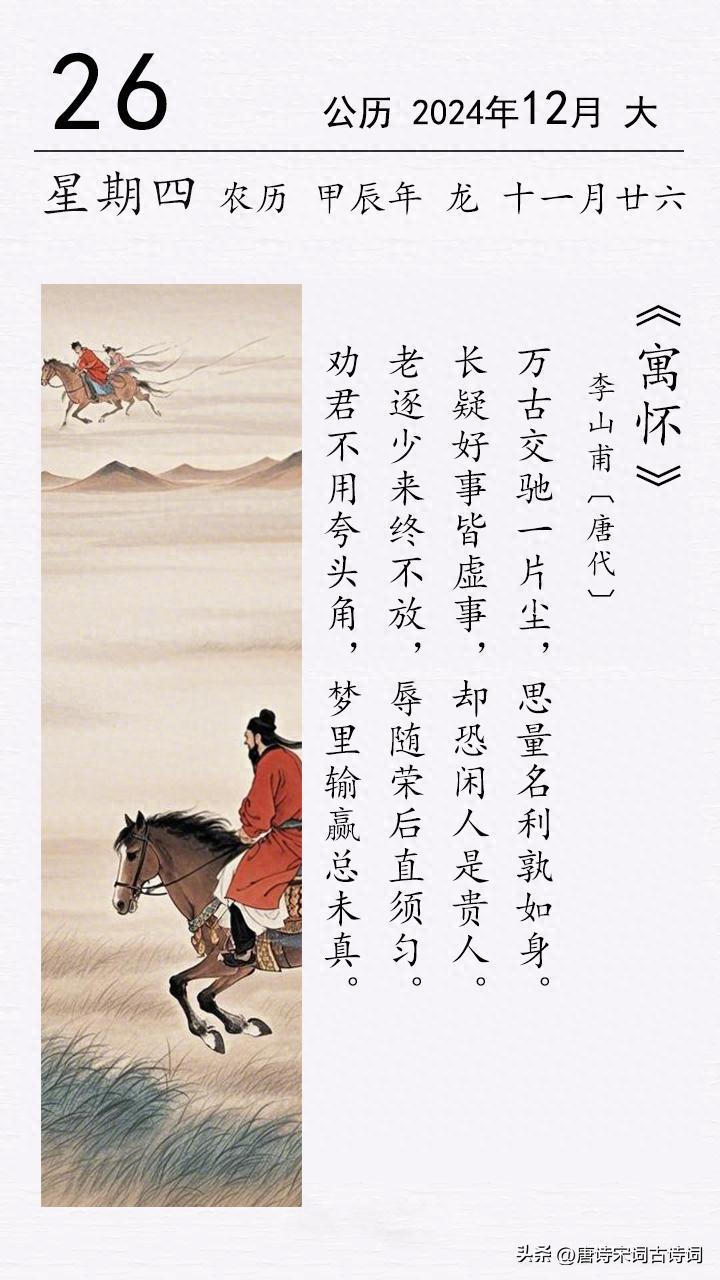 26
公历 2024年12月 大
星期四 农历 甲辰年 龙 十一月廿六
《寓怀》
李山甫〔唐代〕
万古交驰一片尘，思量名利孰如身。
长疑好事皆虚事，却恐闲人是贵人。
老逐少来终不放，辱随荣后直须匀。
劝君不用夸头角，梦里输赢总未真。
头条 @唐诗宋词古诗词